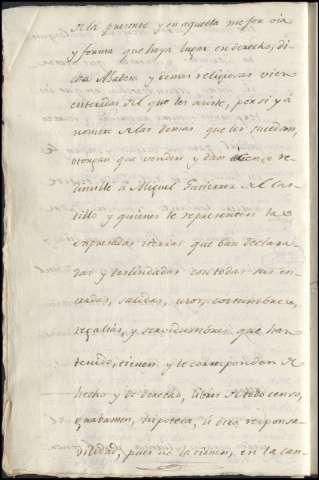 de la presente y en aquella mejor via
y forma que haya lugar en derecho, di
cha Abadesa y demas religiosas vien
enteradas del que les asiste, por si y á
nombre de las demas que les sucedan,
otorgan que venden y dan á censo re
dimible á Miguel Gutierrez del Cas
tillo y quienes le representen las
expresadas tierras que ban declara
das y deslindadas con todas sus en
tradas, salidas, usos, costumbres,
regalias, y servidumbres que han
tenido, tienen y le corresponden de
hecho y de derecho, libres de todo censo,
gravamen, hipoteca, ú otra responsa
vilidad, pues no la tienen, en la can